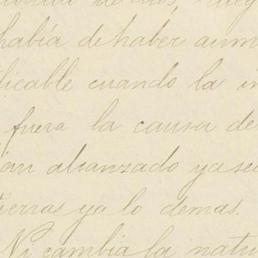 había de haber aum
licable cuando la in
fuera la causa de
an alcanzado ya sea
ierras ya lo demas.
Ni cambia la natu